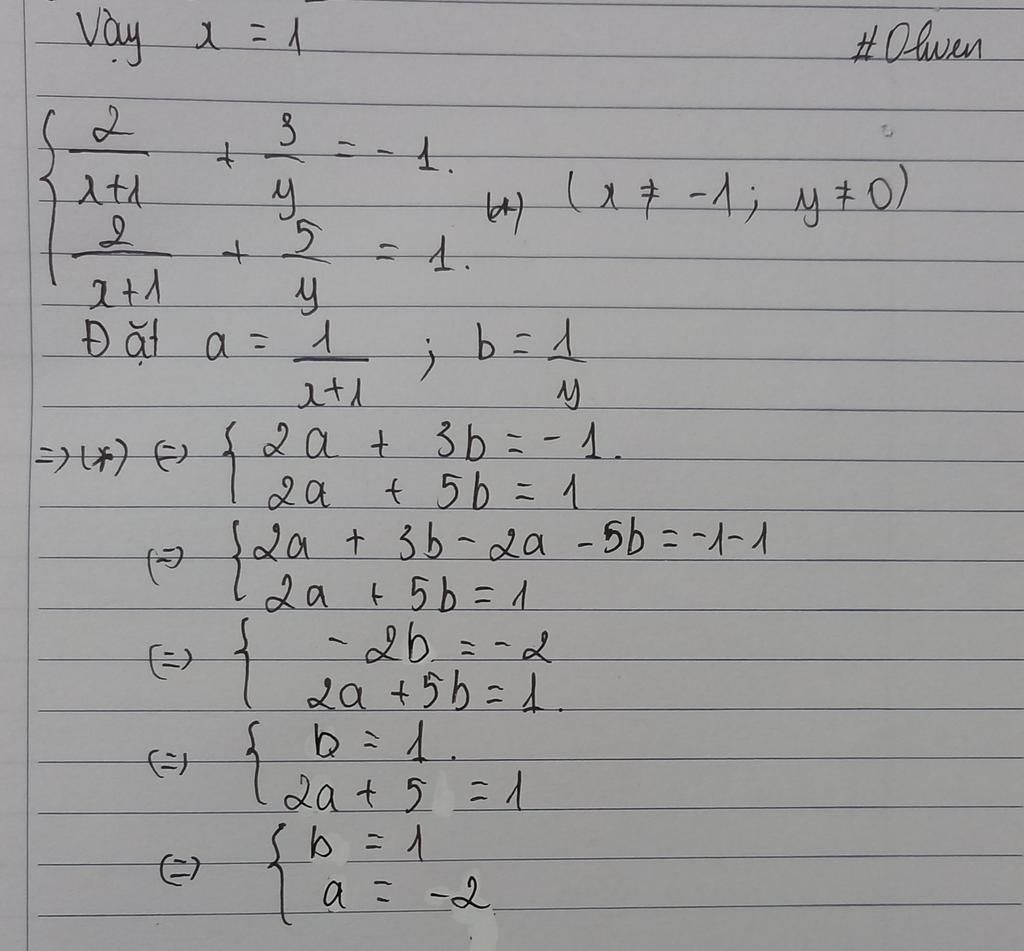 Vậy x = 1
#Olwen
{ 2/(x+1) + 3/y = -1.
(*) (x ≠ -1; y ≠ 0)
2/(x+1) + 5/y = 1.
Đặt a = 1/(x+1) ; b = 1/y
=> (*) (=) { 2a + 3b = -1.
2a + 5b = 1
(=) { 2a + 3b - 2a - 5b = -1-1
2a + 5b = 1
(=) { - 2b = -2
2a + 5b = 1.
(=) { b = 1.
2a + 5 = 1
(=) { b = 1
a = -2